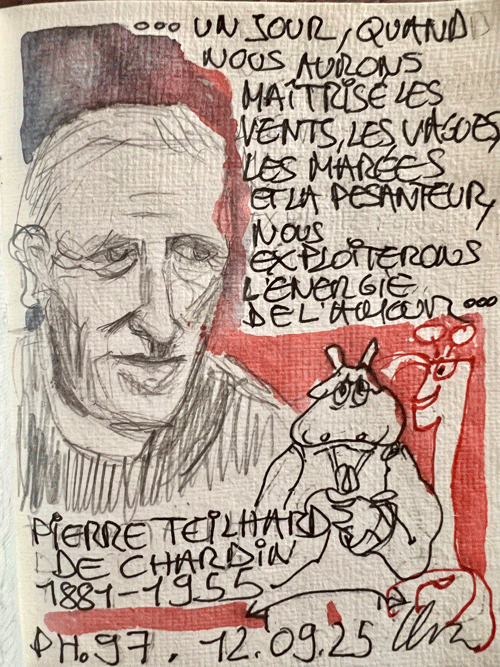 ... UN JOUR, QUAND
NOUS AURONS
MAÎTRISÉ LES
VENTS, LES VAGUES,
LES MARÉES
ET LA PESANTEUR,
NOUS
EXPLOITERONS
L'ÉNERGIE
DE L'AMOUR...
PIERRE TEILHARD
DE CHARDIN
1881-1955
PH.97. 12.09.25